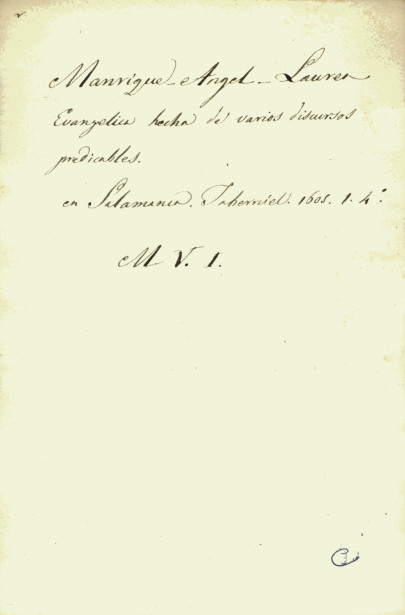 Manrique - Angel - Laurea
Evangelica hecha de varios discursos
predicables.
en Salamanca. Taberniel. 1605. 1. 4.º
M V. 1.